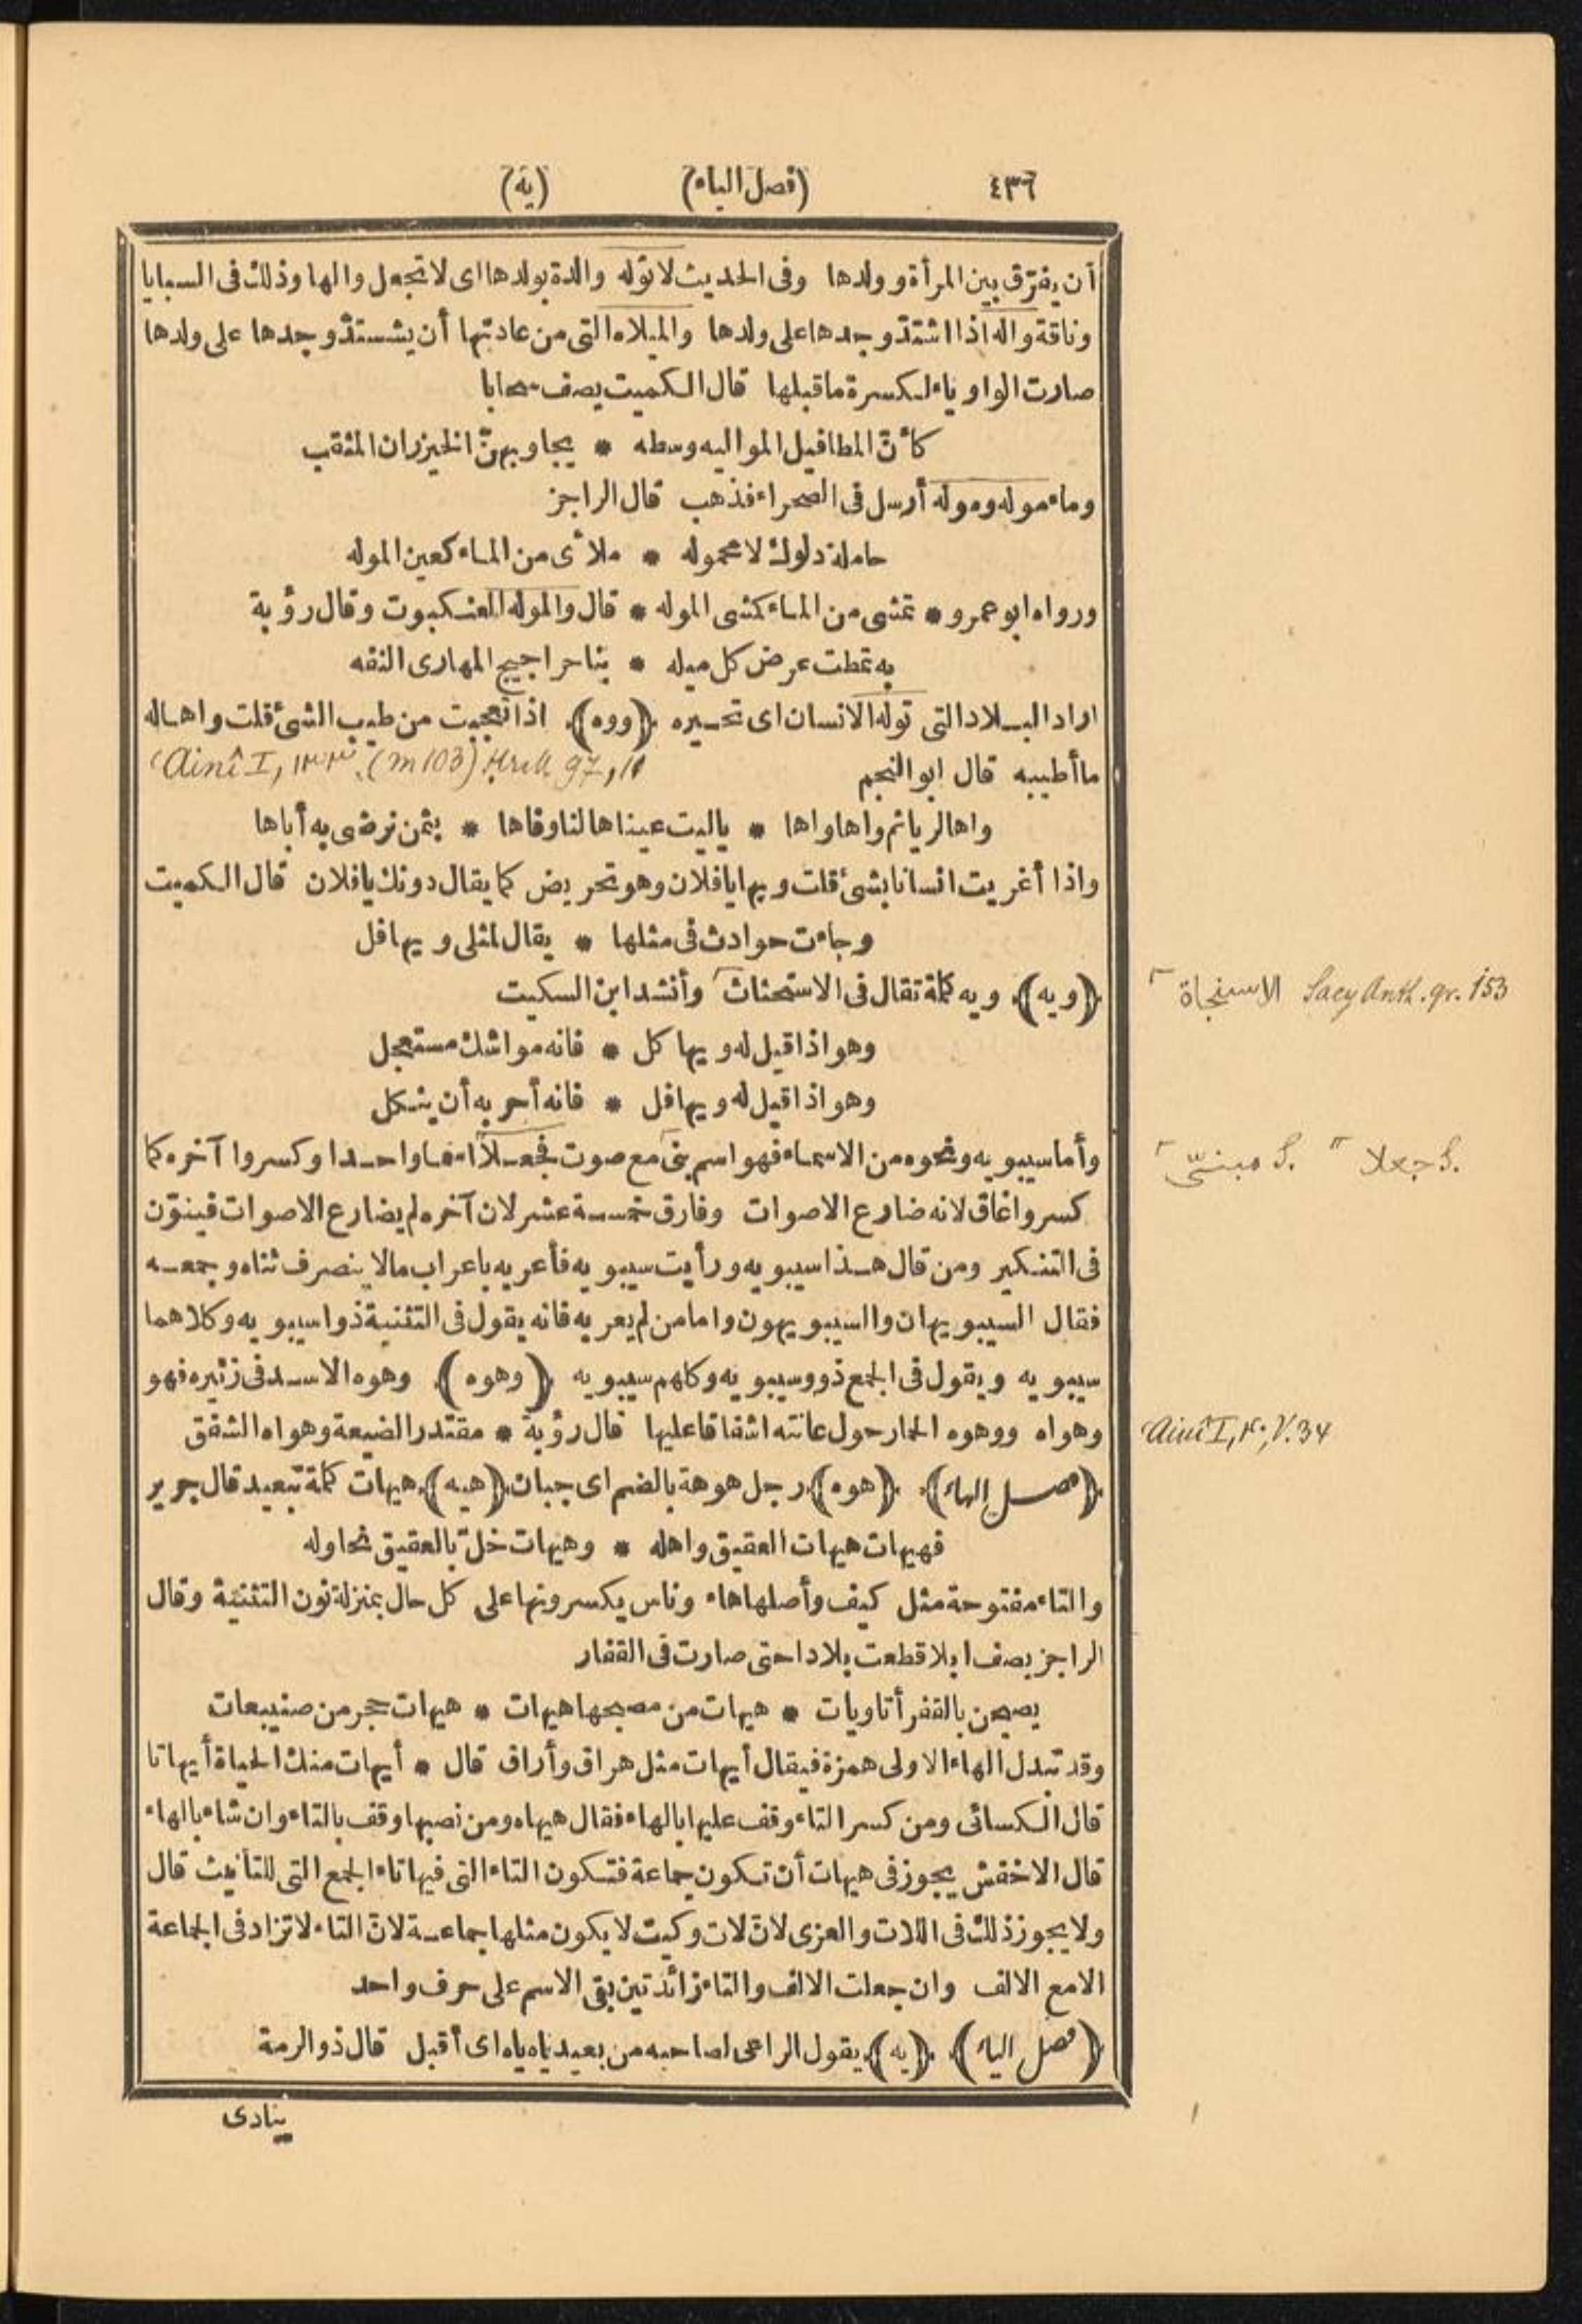 ٤٣٦ (فصل الياء) (يه)
أن يفرّق بين المرأة وولدها وفى الحديث لا تولّه والدة بولدها اى لا تجعل والها وذلك فى السبايا
وناقة واله اذا اشتدّ وجدها على ولدها والميلاه التى من عادتها أن يشستدّ وجدها على ولدها
صارت الواو ياء لكسرة ما قبلها قال الكميت يصف سحابا
كأنّ المطافيل المواليه وسطه * يجاوبهنّ الخيزران المثقب
وماء موله وموله أرسل فى الصحراء فذهب قال الراجز
حاملة دلوك لا محموله * ملأى من الماء كعين الموله
ورواه ابو عمرو * تمشى من الماء كمشى الموله * قال والموله العنكبوت وقال رؤبة
به تمطت عرض كل ميله * بنا حراجيج المهارى النفه
اراد البلاد التى توله الانسان اى تحيره ﴿ووه﴾ اذا تعجبت من طيب الشئ قلت واها له
ما أطيبه قال ابو النجم
ʿAinî I, ١٣٣, (m 103)
97, 11
واها لريا ثم واها واها * ياليت عيناها لنا وفاها * بثمن نرضى به أباها
واذا أغريت انسانا بشئ قلت ويها يا فلان وهو تحريض كما يقال دونك يا فلان قال الكميت
وجاءت حوادث فى مثلها * يقال لمثلى ويها فل
﴿ويه﴾ ويه كلمة تقال فى الاستحثاث وأنشد ابن السكيت
الاستنجاة Sacy Anth. gr. 153
وهو اذا قيل له ويها كل * فانه مواشك مستعجل
وهو اذا قيل له ويها فل * فانه أحر به أن ينكل
وأما سيبويه ونحوه من الاسماء فهو اسم بنى مع صوت فجعلا اسما واحدا وكسروا آخره كما
S. مبنىّ S. جعلا
كسروا غاق لانه ضارع الاصوات وفارق خمسة عشر لان آخره لم يضارع الاصوات فينوّن
فى التنكير ومن قال هذا سيبويه ورأيت سيبويه فأعربه باعراب مالا ينصرف ثناه وجمعه
فقال السيبويهان والسيبويهون واما من لم يعربه فانه يقول فى التثنية ذوا سيبويه وكلاهما
سيبويه ويقول فى الجمع ذوو سيبويه وكلهم سيبويه ﴿وهوه﴾ وهوه الاسد فى زئيره فهو
وهواه ووهوه الحمار حول عانته اشفاقا عليها قال رؤبة * مقتدر الضيعة وهواه الشفق
ʿAinî I, ٣٠, V. 34
﴿فصل الهاء﴾ ﴿هوه﴾ رجل هوهة بالضم اى جبان ﴿هيه﴾ هيهات كلمة تبعيد قال جرير
فهيهات هيهات العقيق واهله * وهيهات خلّ بالعقيق نحاوله
والتاء مفتوحة مثل كيف وأصلها هاء وناس يكسرونها على كل حال بمنزلة نون التثنية وقال
الراجز يصف ابلا قطعت بلادا حتى صارت فى القفار
يصبحن بالقفر أتاويات * هيهات من مصبحها هيهات * هيهات حجر من صنيبعات
وقد تبدل الهاء الاولى همزة فيقال أيهات مثل هراق وأراق قال * أيهات منك الحياة أيهاتا
قال الكسائى ومن كسر التاء وقف عليها بالهاء فقال هيهاه ومن نصبها وقف بالتاء وان شاء بالهاء
قال الاخفش يجوز فى هيهات أن تكون جماعة فتكون التاء التى فيها تاء الجمع التى للتأنيث قال
ولا يجوز ذلك فى اللات والعزى لانّ لات وكيت لا يكون مثلها جماعة لانّ التاء لا تزاد فى الجماعة
الا مع الالف وان جعلت الالف والتاء زائدتين بقى الاسم على حرف واحد
﴿فصل الياء﴾ ﴿يه﴾ يقول الراعى لصاحبه من بعيد ياه ياه اى أقبل قال ذو الرمة
ينادى